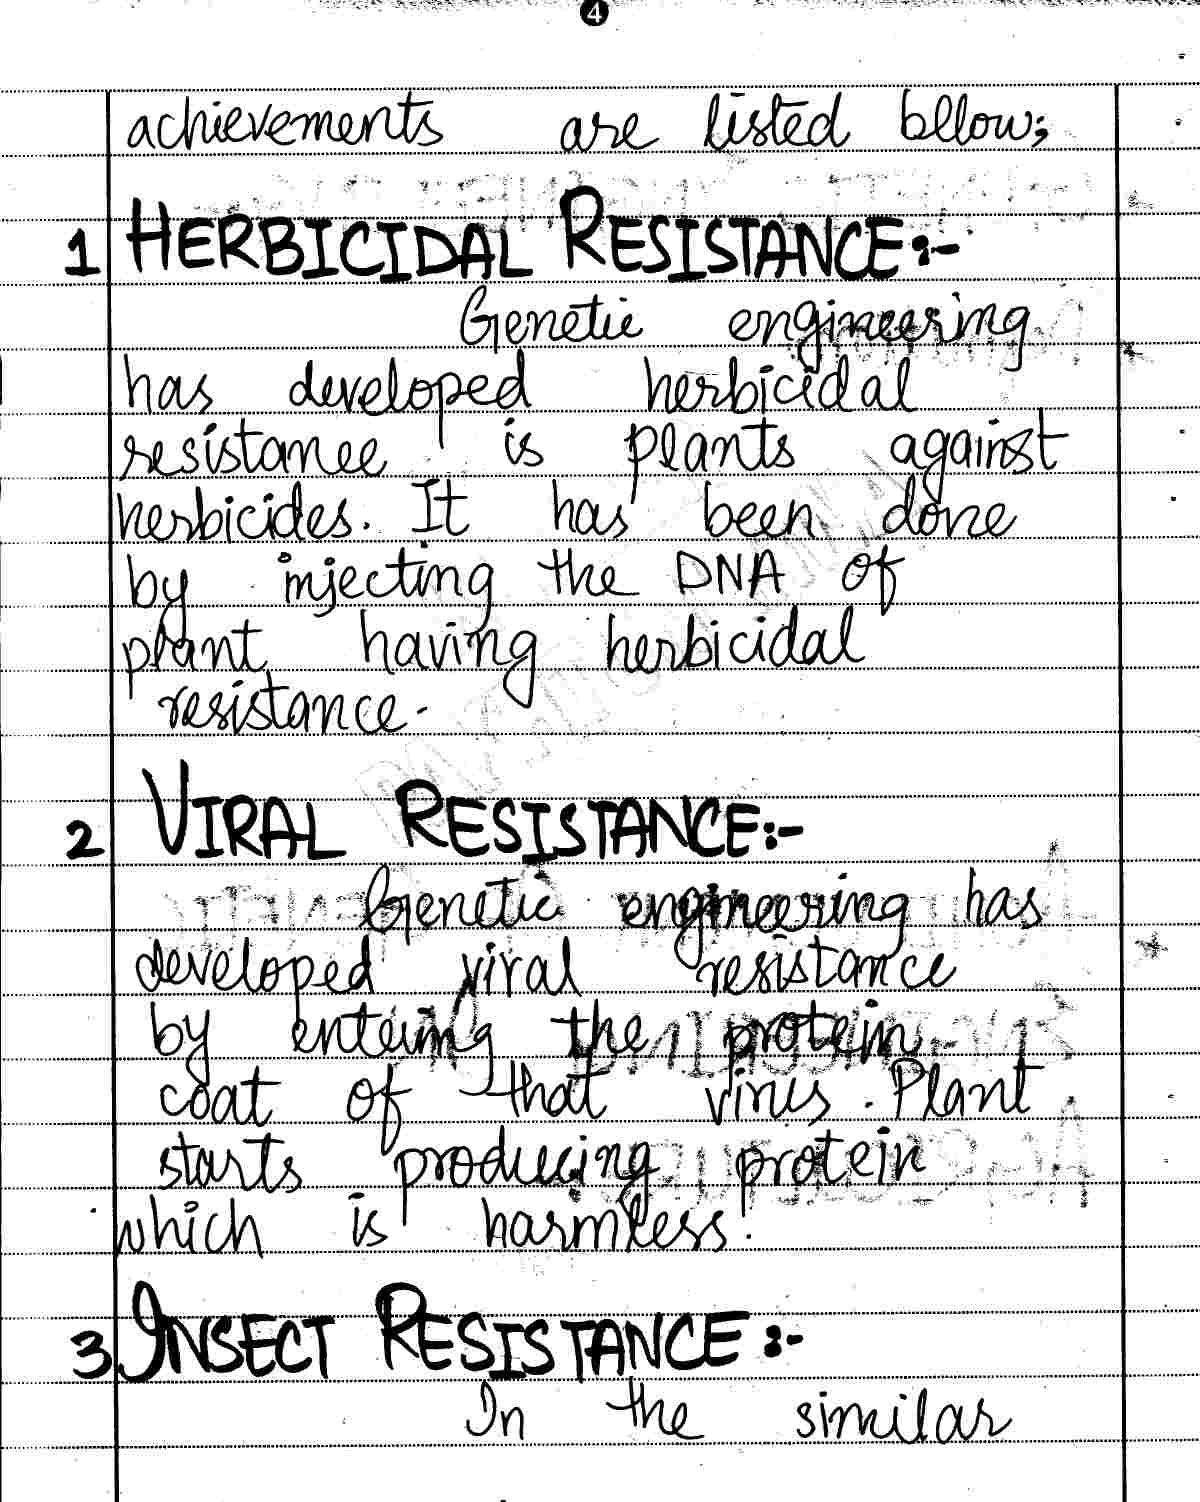 4
achievements are listed bllow;
1 HERBICIDAL RESISTANCE:-
Genetic engineering
has developed herbicidal
resistance is plants against
herbicides. It has been done
by injecting the DNA of
plant having herbicidal
resistance.
2 VIRAL RESISTANCE:-
Genetic engineering has
developed viral resistance
by entering the protein
coat of that virus. Plant
starts producing protein
which is harmless.
3 INSECT RESISTANCE:-
In the similar